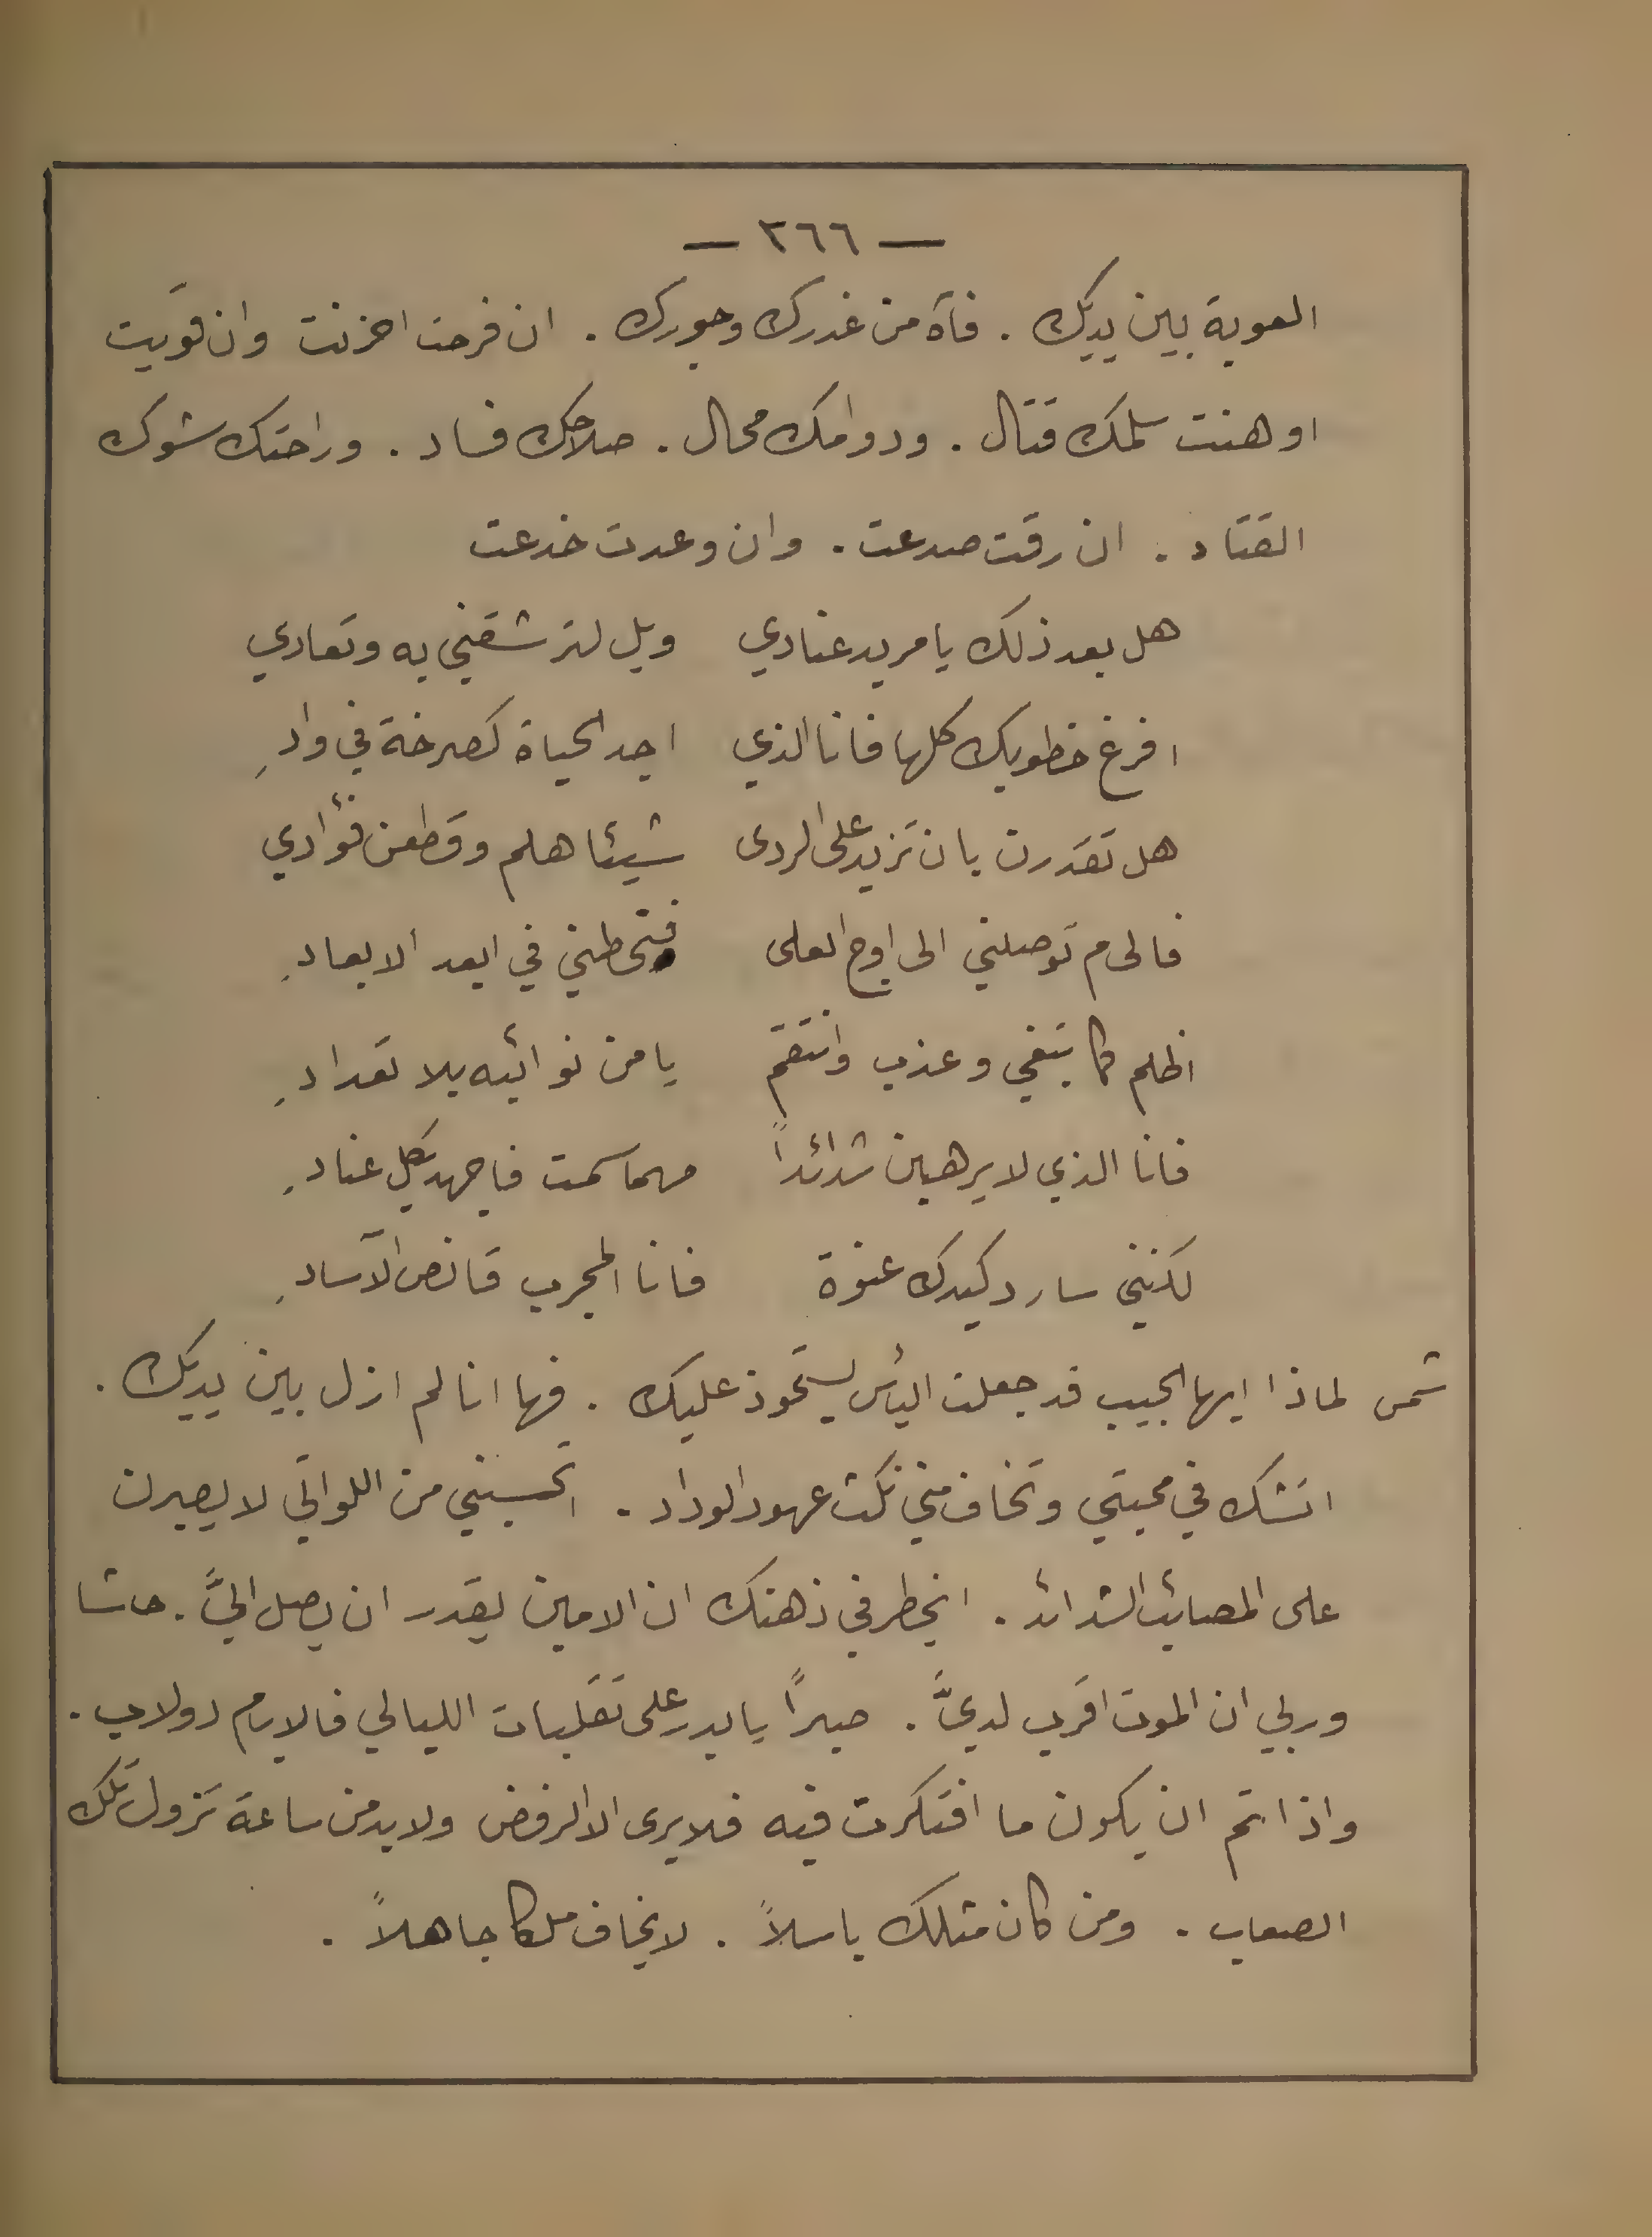 — ٣٦٦ —
العوبة بين يديك . فآه من غدرك وجورك . ان فرحت احزنت وان قويت
اوهنت سلمك قتال . ودوامك محال . صلاحك فساد . وراحتك شوك
القتاد . ان رقت صدعت . وان وعدت خدعت
هل بعد ذلك يا مريد عنادي ويل لترشقني به وتعادي
افرغ خطوبك كلها فانا الذي اجد الحياة كصرخة في وادِ
هل تقدرن بان تزيد على الردى شيئا هلم وقطعن فؤادي
فالى م توصلني الى اوج العلى فتحطني في ابعد الابعادِ
اظلم كما تبغي وعذب وانتقم يا من نوائبه بلا تعدادِ
فانا الذي لا يرهبن شدائداً مهما سمت فاجهد بكل عنادِ
لكنني سارد كيدك عنوة فانا المجرب قانص الآسادِ
شمس لماذا ايها الحبيب قد جعلت اليأس يستحوذ عليك . فها انا لم ازل بين يديك .
اتشك في محبتي وتخاف مني نكث عهود الوداد . اتحسبني من اللواتي لا يصبرن
على المصائب الشدائد . ايخطر في ذهنك ان الامين يقدر ان يصل اليَّ . حاشا
وربي ان الموت اقرب لديَّ . صبراً يا بدر على تقلبات الليالي فالايام دولاب .
واذا تم ان يكون ما افتكرت فيه فلا يرى الا الرفض ولا بد من ساعة تزول تلك
الصعاب . ومن كان مثلك باسلاً . لا يخاف ملكا جاهلاً .